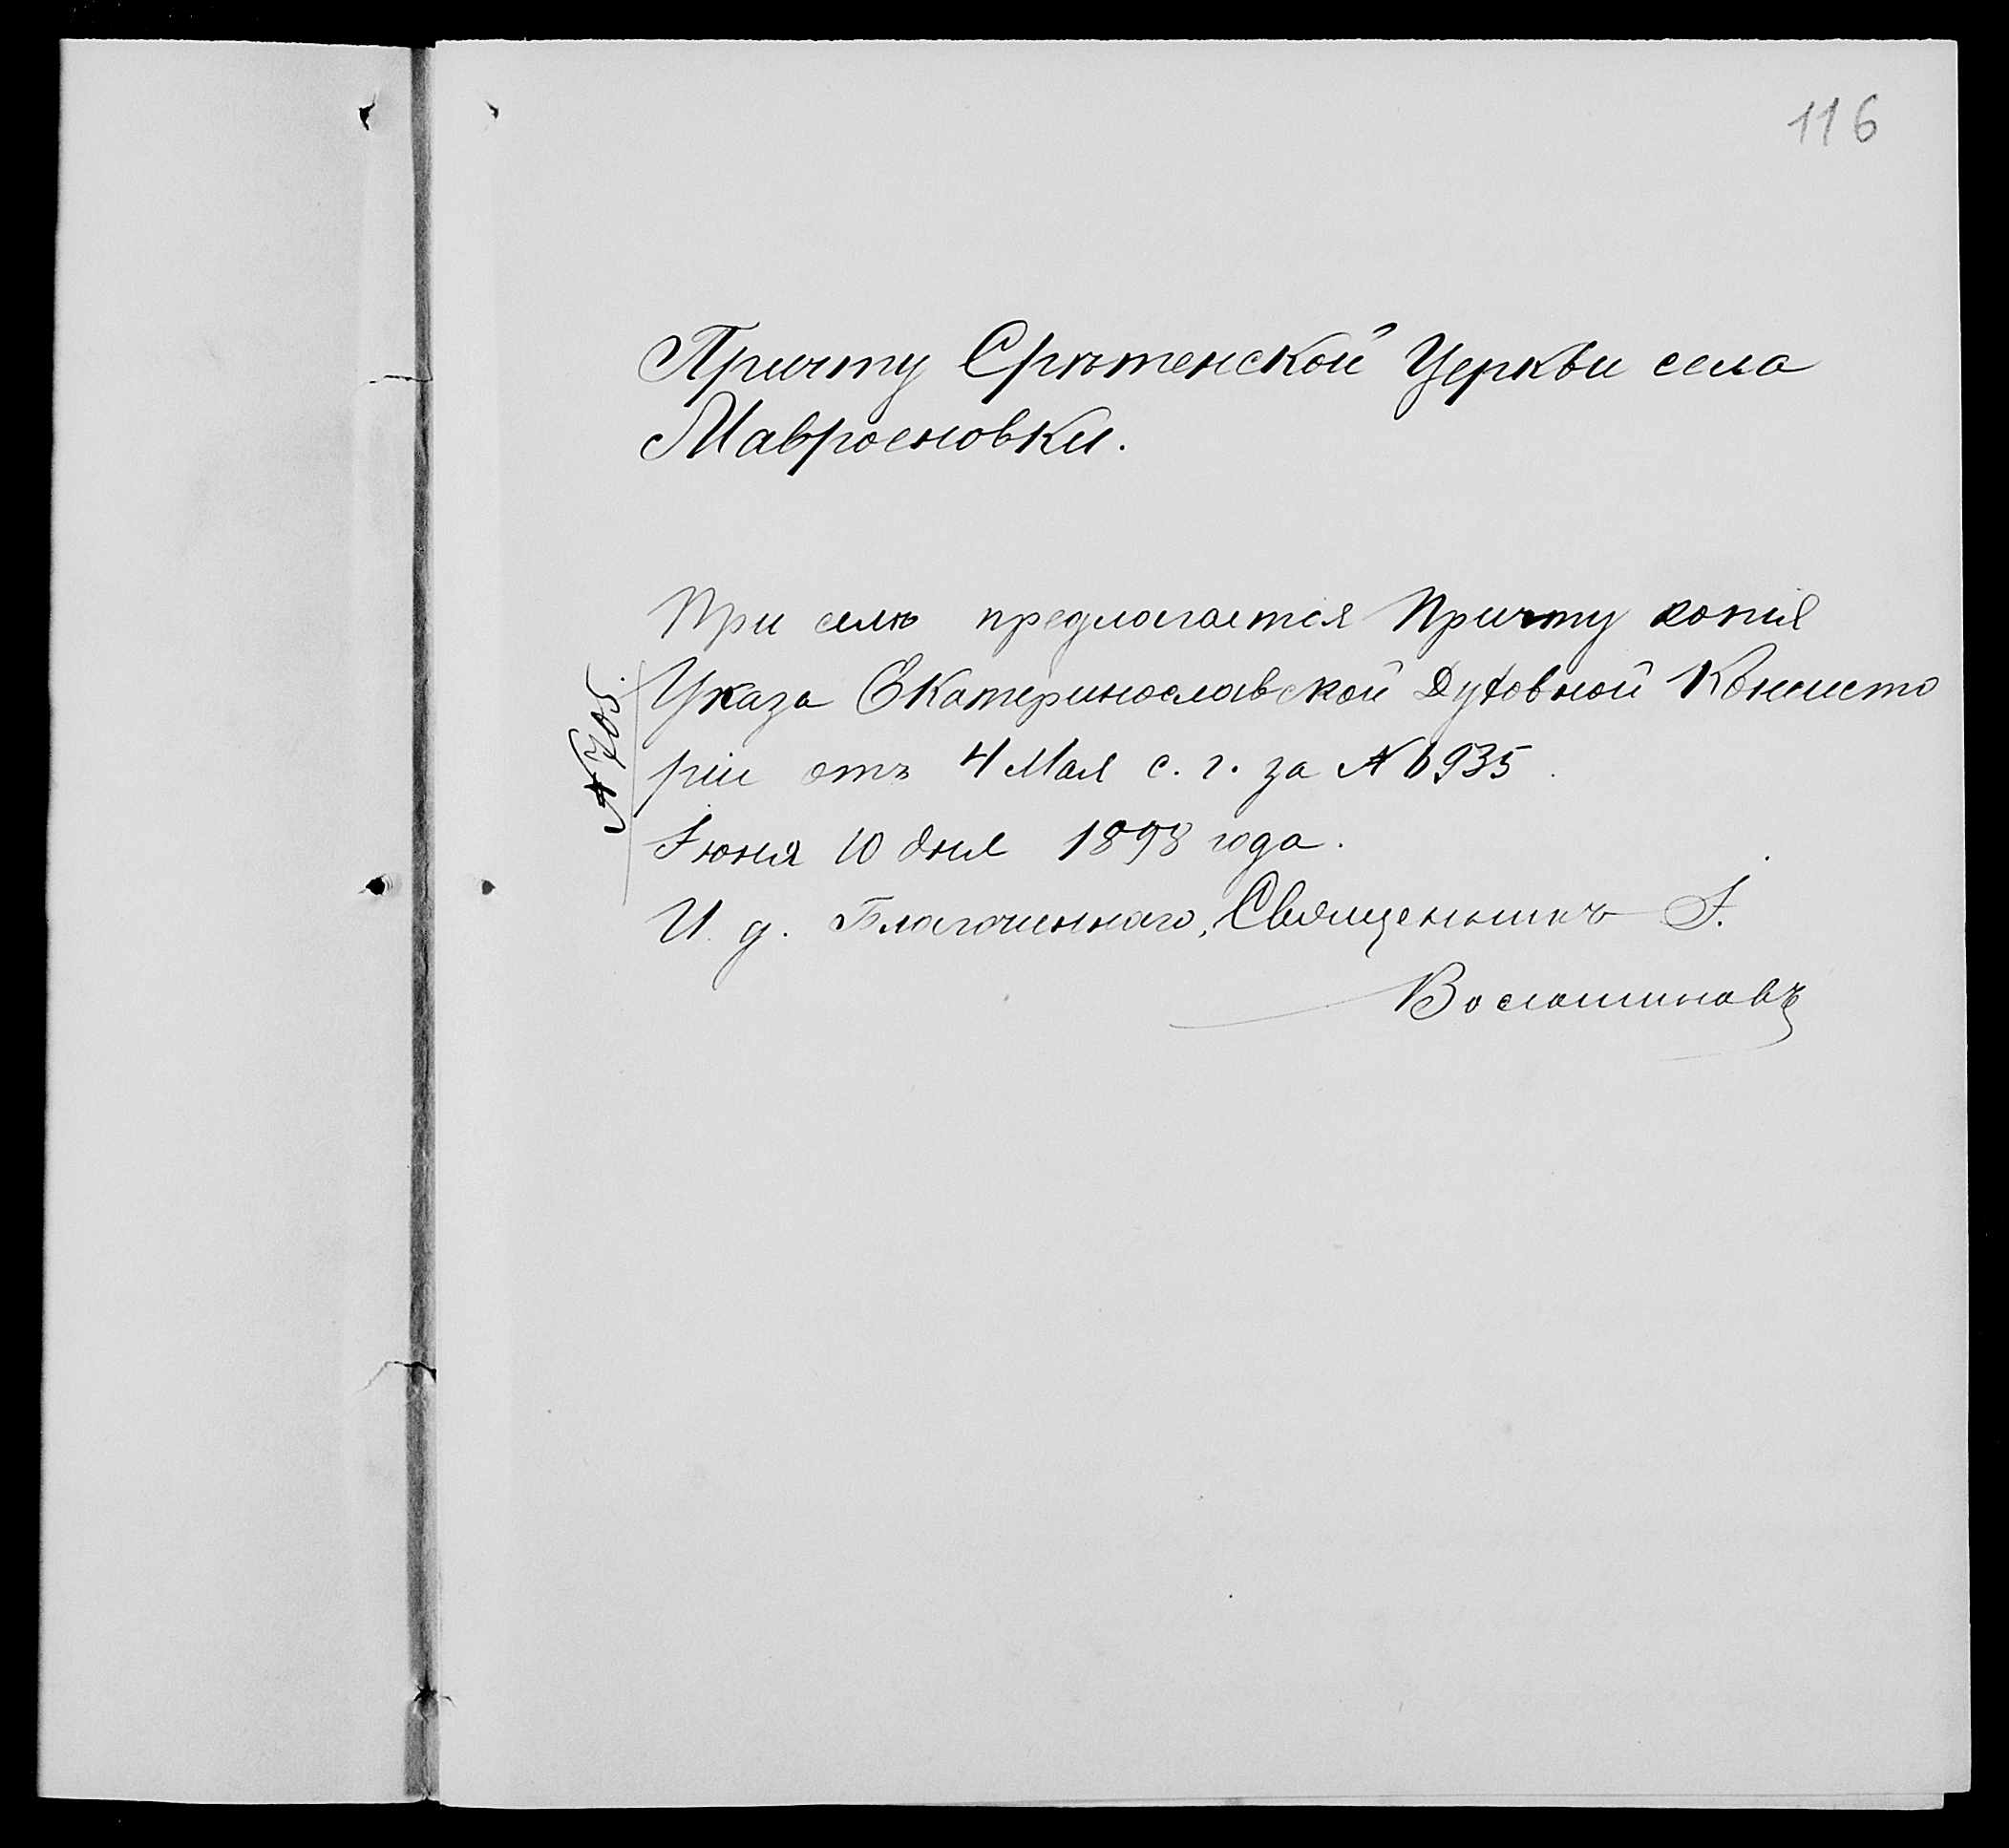 116
Причту Срѣтенской Церкви села
Мавроеновки.
При семъ предлагается Причту копія
Указа Екатеринославской Духовной Консисто
ріи отъ 4 Мая с. г. за № 6935.
№ 705.
Іюня 10 дня 1898 года.
И. д. Благочиннаго, Священникъ І.
Волошиновъ